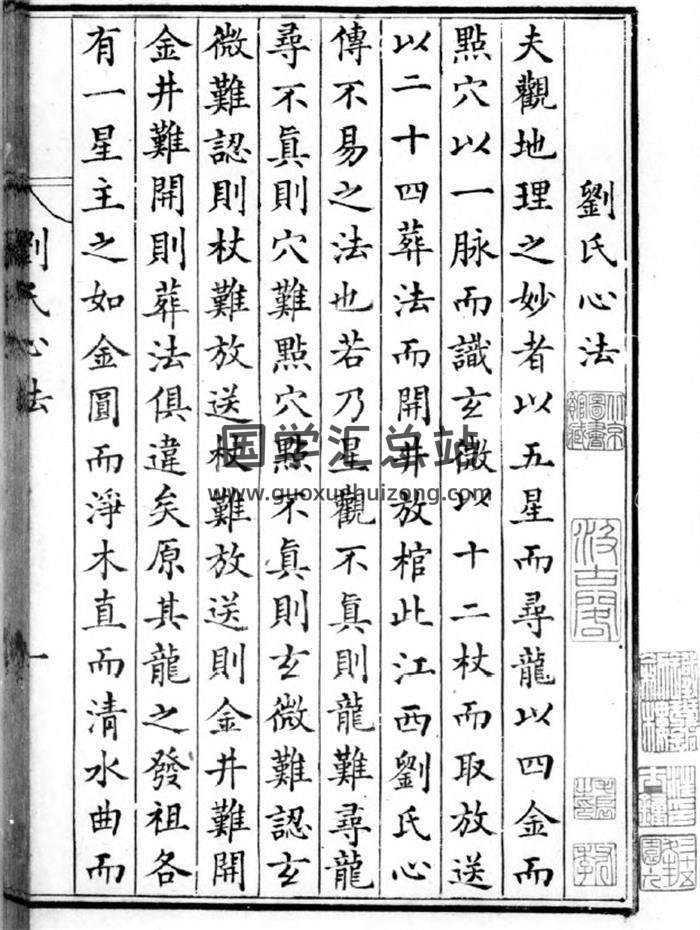 劉氏心法
夫觀地理之妙者以五星而尋龍以四金而
點穴以一脉而識玄微以十二杖而取放送
以二十四葬法而開井放棺此江西劉氏心
傳不易之法也若乃星觀不眞則龍難尋龍
尋不眞則穴難點穴點不眞則玄微難認玄
微難認則杖難放送杖難放送則金井難開
金井難開則葬法俱違矣原其龍之發祖各
有一星主之如金圓而淨木直而清水曲而
劉氏心法
一
国学汇总站
www.guoxuehuizong.com
北京圖書館藏
汲古閣